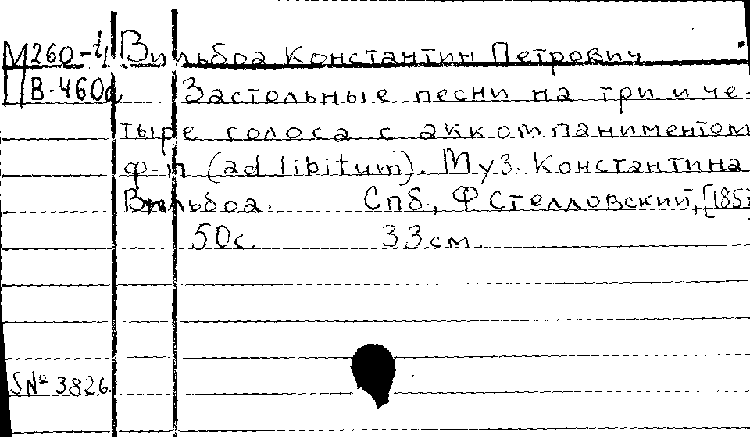 М260-4 Вильбоа Константин Петрович
В-460 Застольные песни на три и че-
тыре голоса с аккомпаниментом
ф-п (ad libitum). Муз. Константина
Вильбоа. Спб, Ф Стелловский, [185
50с. 33см.
№ 3826